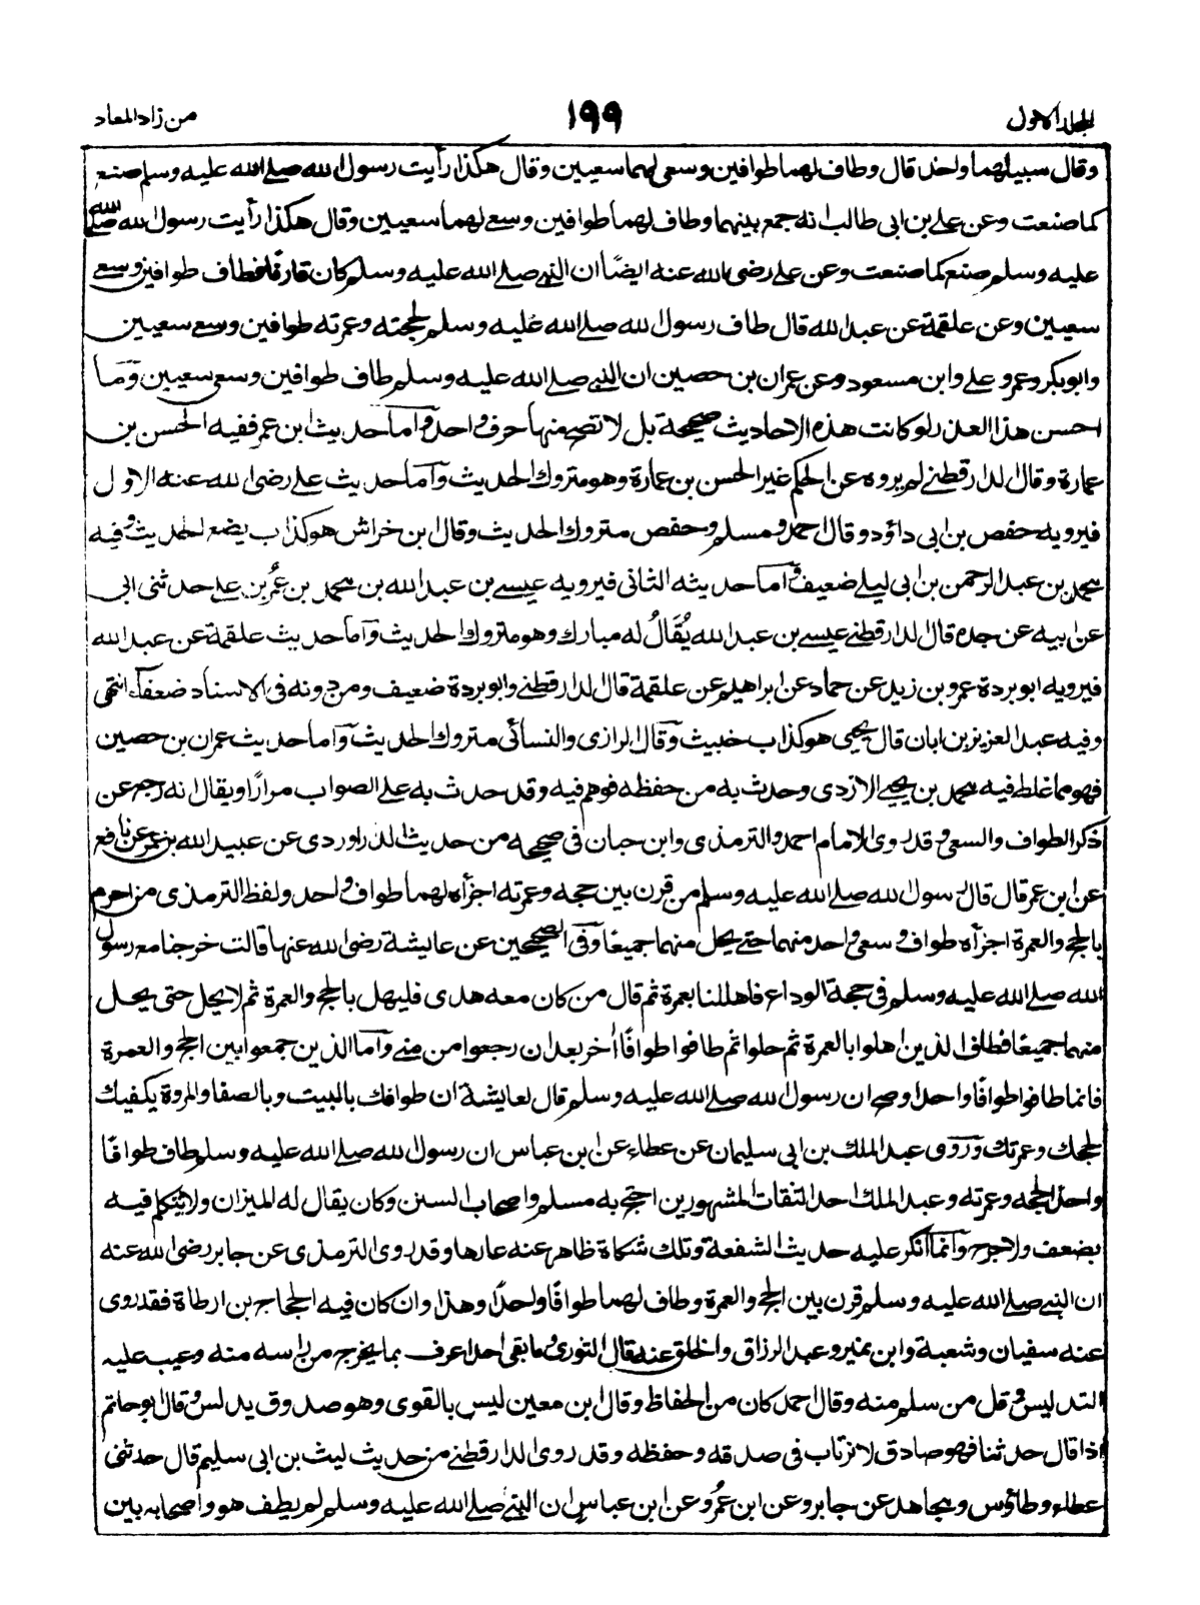 الجلد الاول
١٩٩
من زاد المعاد
وقال سبيلهما واحد قال وطاف لهما طوافين وسعى لهما سعيين وقال هكذا رأيت رسول الله صلى الله عليه وسلم صنع
كما صنعت وعن علي بن ابي طالب انه جمع بينهما وطاف لهما طوافين وسعى لهما سعيين وقال هكذا رأيت رسول الله صلى الله
عليه وسلم صنع كما صنعت وعن علي رضى الله عنه ايضًا ان النبي صلى الله عليه وسلم كان قارنًا فطاف طوافين وسعى
سعيين وعن علقمة عن عبد الله قال طاف رسول الله صلى الله عليه وسلم لحجته وعمرته طوافين وسعى سعيين
وابوبكر وعمر وعلي وابن مسعود وعن عمران بن حصين ان النبي صلى الله عليه وسلم طاف طوافين وسعى سعيين وما
احسن هذا العذر لو كانت هذه الاحاديث صحيحة بل لا تصح منها حرف واحد واما حديث ابن عمر ففيه الحسن بن
عمارة وقال الدارقطني لم يروه عن الحكم غير الحسن بن عمارة وهو متروك الحديث واما حديث علي رضى الله عنه الاول
فيرويه حفص بن ابي داؤد وقال احمد ومسلم وحفص متروك الحديث وقال ابن خراش هو كذاب يضع الحديث وفيه
محمد بن عبد الرحمن بن ابي ليلى ضعيف واما حديثه الثانى فيرويه عيسى بن عبد الله بن محمد بن عمر بن علي حدثنى ابى
عن ابيه عن جده قال الدارقطني عيسى بن عبد الله يُقَالُ له مبارك وهو متروك الحديث واما حديث علقمة عن عبد الله
فيرويه ابو بردة عمرو بن زيد عن حماد عن ابراهيم عن علقمة قال الدارقطني وابو بردة ضعيف ومن دونه فى الاسناد ضعفاء انتهى
وفيه عبد العزيز بن ابان قال يحيى هو كذاب خبيث وقال الرازى والنسائى متروك الحديث واما حديث عمران بن حصين
فهو مما غلط فيه محمد بن يحيى الازدى وحدث به من حفظه فوهم فيه وقد حدث به على الصواب مرارًا ويقال انه رجع عن
ذكر الطواف والسعى وقد روى الامام احمد والترمذى وابن حبان فى صحيحه من حديث الدراوردى عن عبيد الله بن عمر عن نافع
عن ابن عمر قال قال رسول الله صلى الله عليه وسلم من قرن بين حجه وعمرته اجزأه لهما طواف واحد ولفظ الترمذى من احرم
بالحج والعمرة اجزأه طواف وسعى واحد منهما حتى يحل منهما جميعًا وفى الصحيحين عن عايشة رضى الله عنها قالت خرجنا مع رسول
الله صلى الله عليه وسلم فى حجة الوداع فاهللنا بعمرة ثم قال من كان معه هدى فليهل بالحج والعمرة ثم لا يحل حتى يحل
منهما جميعًا فطاف الذين اهلوا بالعمرة ثم حلوا ثم طافوا طوافًا أخر بعد ان رجعوا من منى واما الذين جمعوا بين الحج والعمرة
فانما طافوا طوافًا واحدا وصح ان رسول الله صلى الله عليه وسلم قال لعايشة ان طوافك بالبيت وبالصفا والمروة يكفيك
لحجك وعمرتك وروى عبد الملك بن ابى سليمان عن عطاء عن ابن عباس ان رسول الله صلى الله عليه وسلم طاف طوافًا
واحدًا لحجه وعمرته وعبد الملك احد الثقات المشهورين احتج به مسلم واصحاب السنن وكان يقال له الميزان ولا يتكلم فيه
بضعف ولا جرح وانما انكر عليه حديث الشفعة وتلك شكاة ظاهر عنه عارها وقد روى الترمذى عن جابر رضى الله عنه
ان النبي صلى الله عليه وسلم قرن بين الحج والعمرة وطاف لهما طوافًا واحدًا وهذا وان كان فيه الحجاج بن ارطاة فقد روى
عنه سفيان وشعبة وابن نمير وعبد الرزاق والخلق عنه قال الثورى وما بقى احد اعرف بما يخرج من راسه منه وعيب عليه
التدليس وقل من سلم منه وقال احمد كان من الحفاظ وقال ابن معين ليس بالقوى وهو صدوق يدلس وقال ابو حاتم
اذا قال حدثنا فهو صادق لا نرتاب فى صدقه وحفظه وقد روى الدارقطني من حديث ليث بن ابى سليم قال حدثنى
عطاء وطاؤس ومجاهد عن جابر وعن ابن عمر وعن ابن عباس ان النبي صلى الله عليه وسلم لم يطف هو واصحابه بين